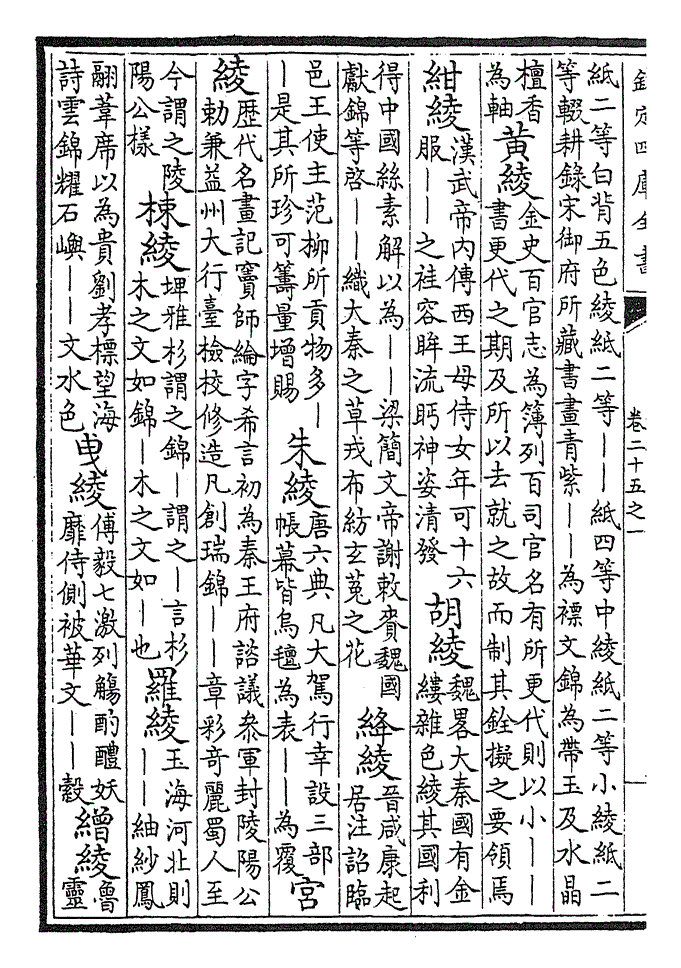 欽定四庫全書
卷二十五之一
紙二等白背五色綾紙二等——紙四等中綾紙二等小綾紙二
等輟耕錄宋御府所藏書畫青紫——為褾文錦為帶玉及水晶
檀香
為軸
黃綾
金史百官志為簿列百司官名有所更代則以小——
書更代之期及所以去就之故而制其銓擬之要領焉
紺綾
漢武帝內傳西王母侍女年可十六
服——之袿容眸流眄神姿清發
胡綾
魏畧大秦國有金
縷雜色綾其國利
得中國絲素解以為——梁簡文帝謝敕賚魏國
獻錦等啓——織大秦之草戎布紡玄菟之花
絳綾
晉咸康起
居注詔臨
邑王使主范柳所貢物多—
—是其所珍可籌量增賜
朱綾
唐六典凡大駕行幸設三部
帳幕皆烏氊為表——為覆
宮
綾
歴代名畫記竇師綸字希言初為秦王府諮議叅軍封陵陽公
勅兼益州大行臺檢校修造凡創瑞錦——章彩竒麗蜀人至
今謂之陵
陽公樣
棟綾
埤雅杉謂之錦—謂之—言杉
木之文如錦—木之文如—也
羅綾
玉海河北則
——紬紗鳳
翮葦席以為貴劉孝標望海
詩雲錦耀石嶼——文水色
曳綾
傅毅七激列觴酌醴妖
靡侍側被華文——縠
繒綾
魯
靈